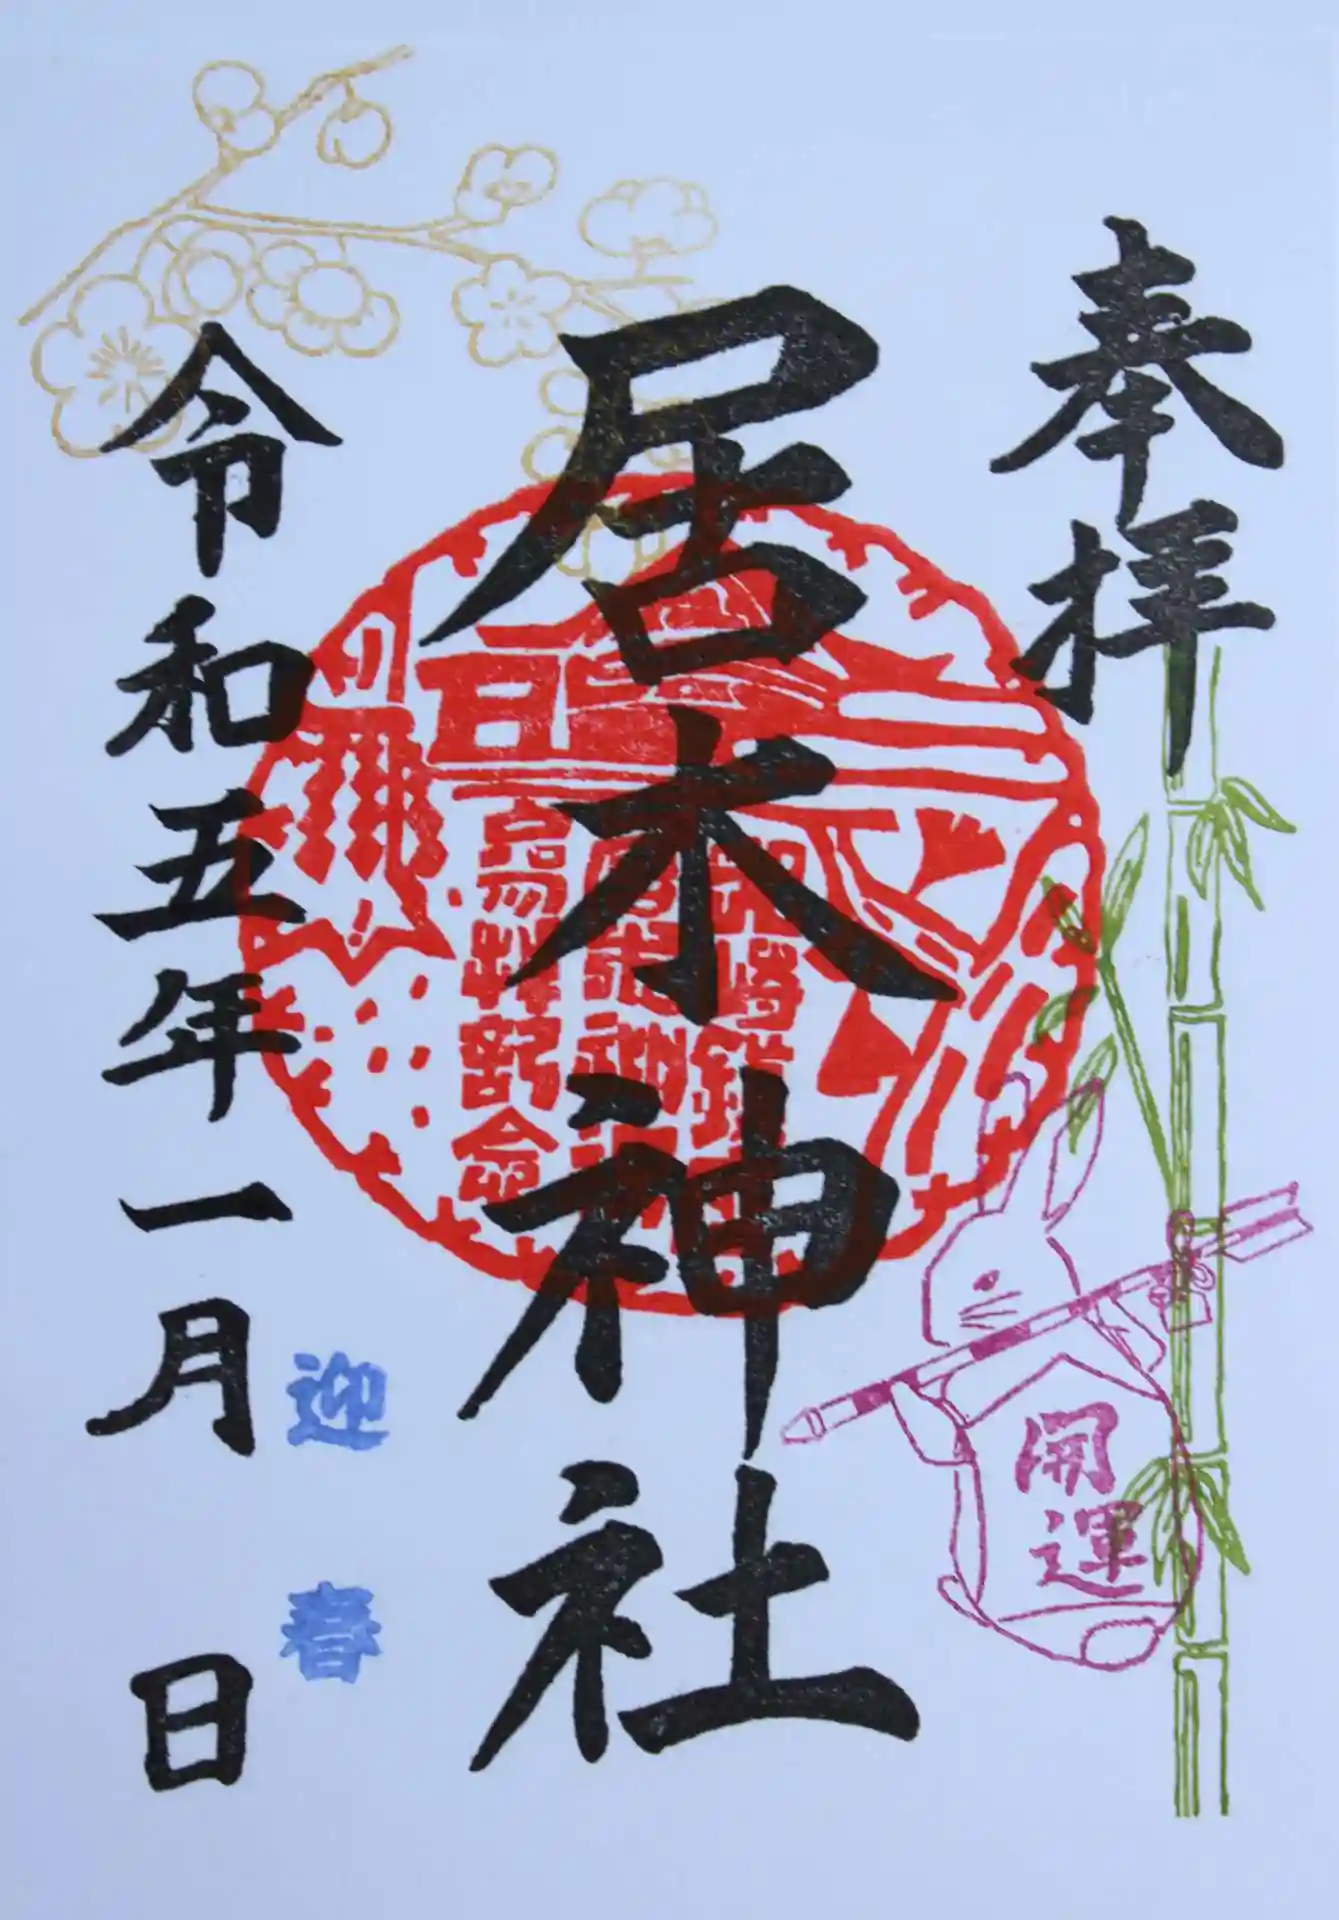 奉拝
居木神社
開運
迎春
令和五年一月 日